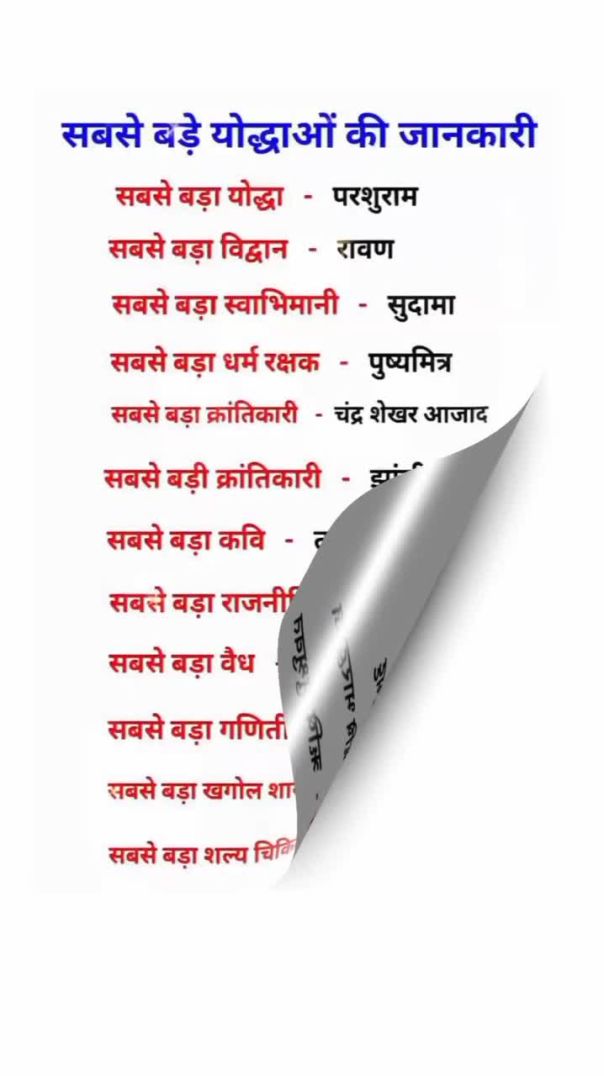 सबसे बड़े योद्धाओं की जानकारी
सबसे बड़ा योद्धा - परशुराम
सबसे बड़ा विद्वान - रावण
सबसे बड़ा स्वाभिमानी - सुदामा
सबसे बड़ा धर्म रक्षक - पुष्यमित्र
सबसे बड़ा क्रांतिकारी - चंद्र शेखर आजाद
सबसे बड़ी क्रांतिकारी -
सबसे बड़ा कवि -
सबसे बड़ा
सबसे बड़ा वैध
सबसे बड़ा
सबसे बड़ा खगोल
सबसे बड़ा शल्य